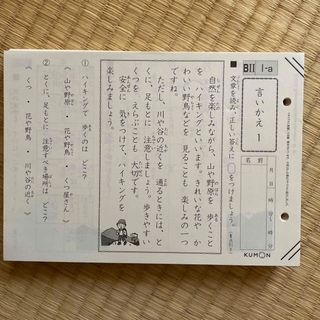 BII 1-a
言いかえ 1
名前
月 日
時 分
時 分
文章を読み、正しい答えに をつけましょう。
自然を楽しみながら、山や野原を 歩くこと
を、ハイキングといいます。きれいな花や か
わいい野鳥などを 見ることも 楽しみの一つ
ですね。
ただし、川や谷の近くを 通るときには、と
くに、足もとに 注意しましょう。歩きやすい
くつを えらぶことも 大切です。
安全に 気をつけて、ハイキングを
楽しみましょう。
① ハイキングで 歩くのは どこ?
〈 山や野原 ・ 花や野鳥 ・ くつ屋さん 〉
② とくに、足もとに 注意すべき場所は どこ?
〈 くつ ・ 花や野鳥 ・ 川や谷の近く 〉
KUMON